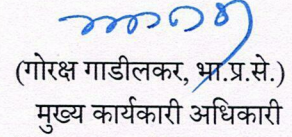 (गोरक्ष गाडीलकर, भा.प्र.से.)
मुख्य कार्यकारी अधिकारी